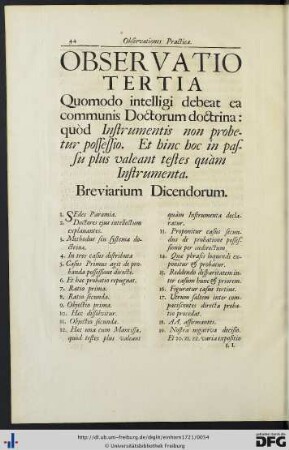 44 Observationes Practica.
OBSERVATIO
TERTIA
Quomodo intelligi debeat ea
communis Doctorum doctrina:
quòd Instrumentis non probe-
tur possessio. Et hinc hoc in pas-
su plus valeant testes quàm
Instrumenta.
Breviarium Dicendorum.
1. SEdes Paramia.
2. Doctores ejus intellectum
explanantes.
3. Methodus seu systema do-
ctrina.
4. In tres casus distributa
5. Casus Primus agit de pro-
banda possessione directè.
6. Et hoc probatio repugnat.
7. Ratio prima.
8. Ratio secunda.
9. Objectio prima.
10. Hac dissolvitur.
11. Objectio secunda.
12. Hac una cum Maxima,
quòd testes plus valeant
quàm Instrumenta decla-
ratur.
13. Proponitur casus secun-
dus de probatione posses-
sionis per
14. Qua phrasis loquendi ex-
ponitur & probatur.
15. Reddendo disparitatem in-
ter casum hunc & priorem.
16. Figuratur casus tertius.
17. Utrum saltem inter com-
possessores directa proba-
tio procedat.
18. AA. affirmantes.
19. Nostra negativa decisio.
Et 20. 21. 22. varia expositio
§. I.
http://dl.ub.uni-freiburg.de/diglit/einhorn1721/0054
© Universitätsbibliothek Freiburg
gefördert durch die
DFG